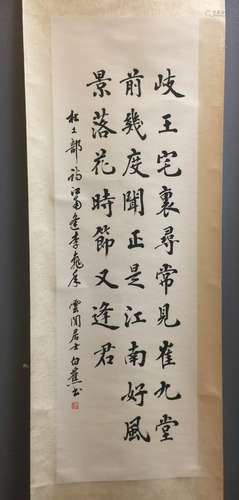 歧王宅裏尋常見崔九堂
前幾度聞正是江南好風
景落花時節又逢君
杜工部詩江南逢李龜年 雲間居士白蕉書